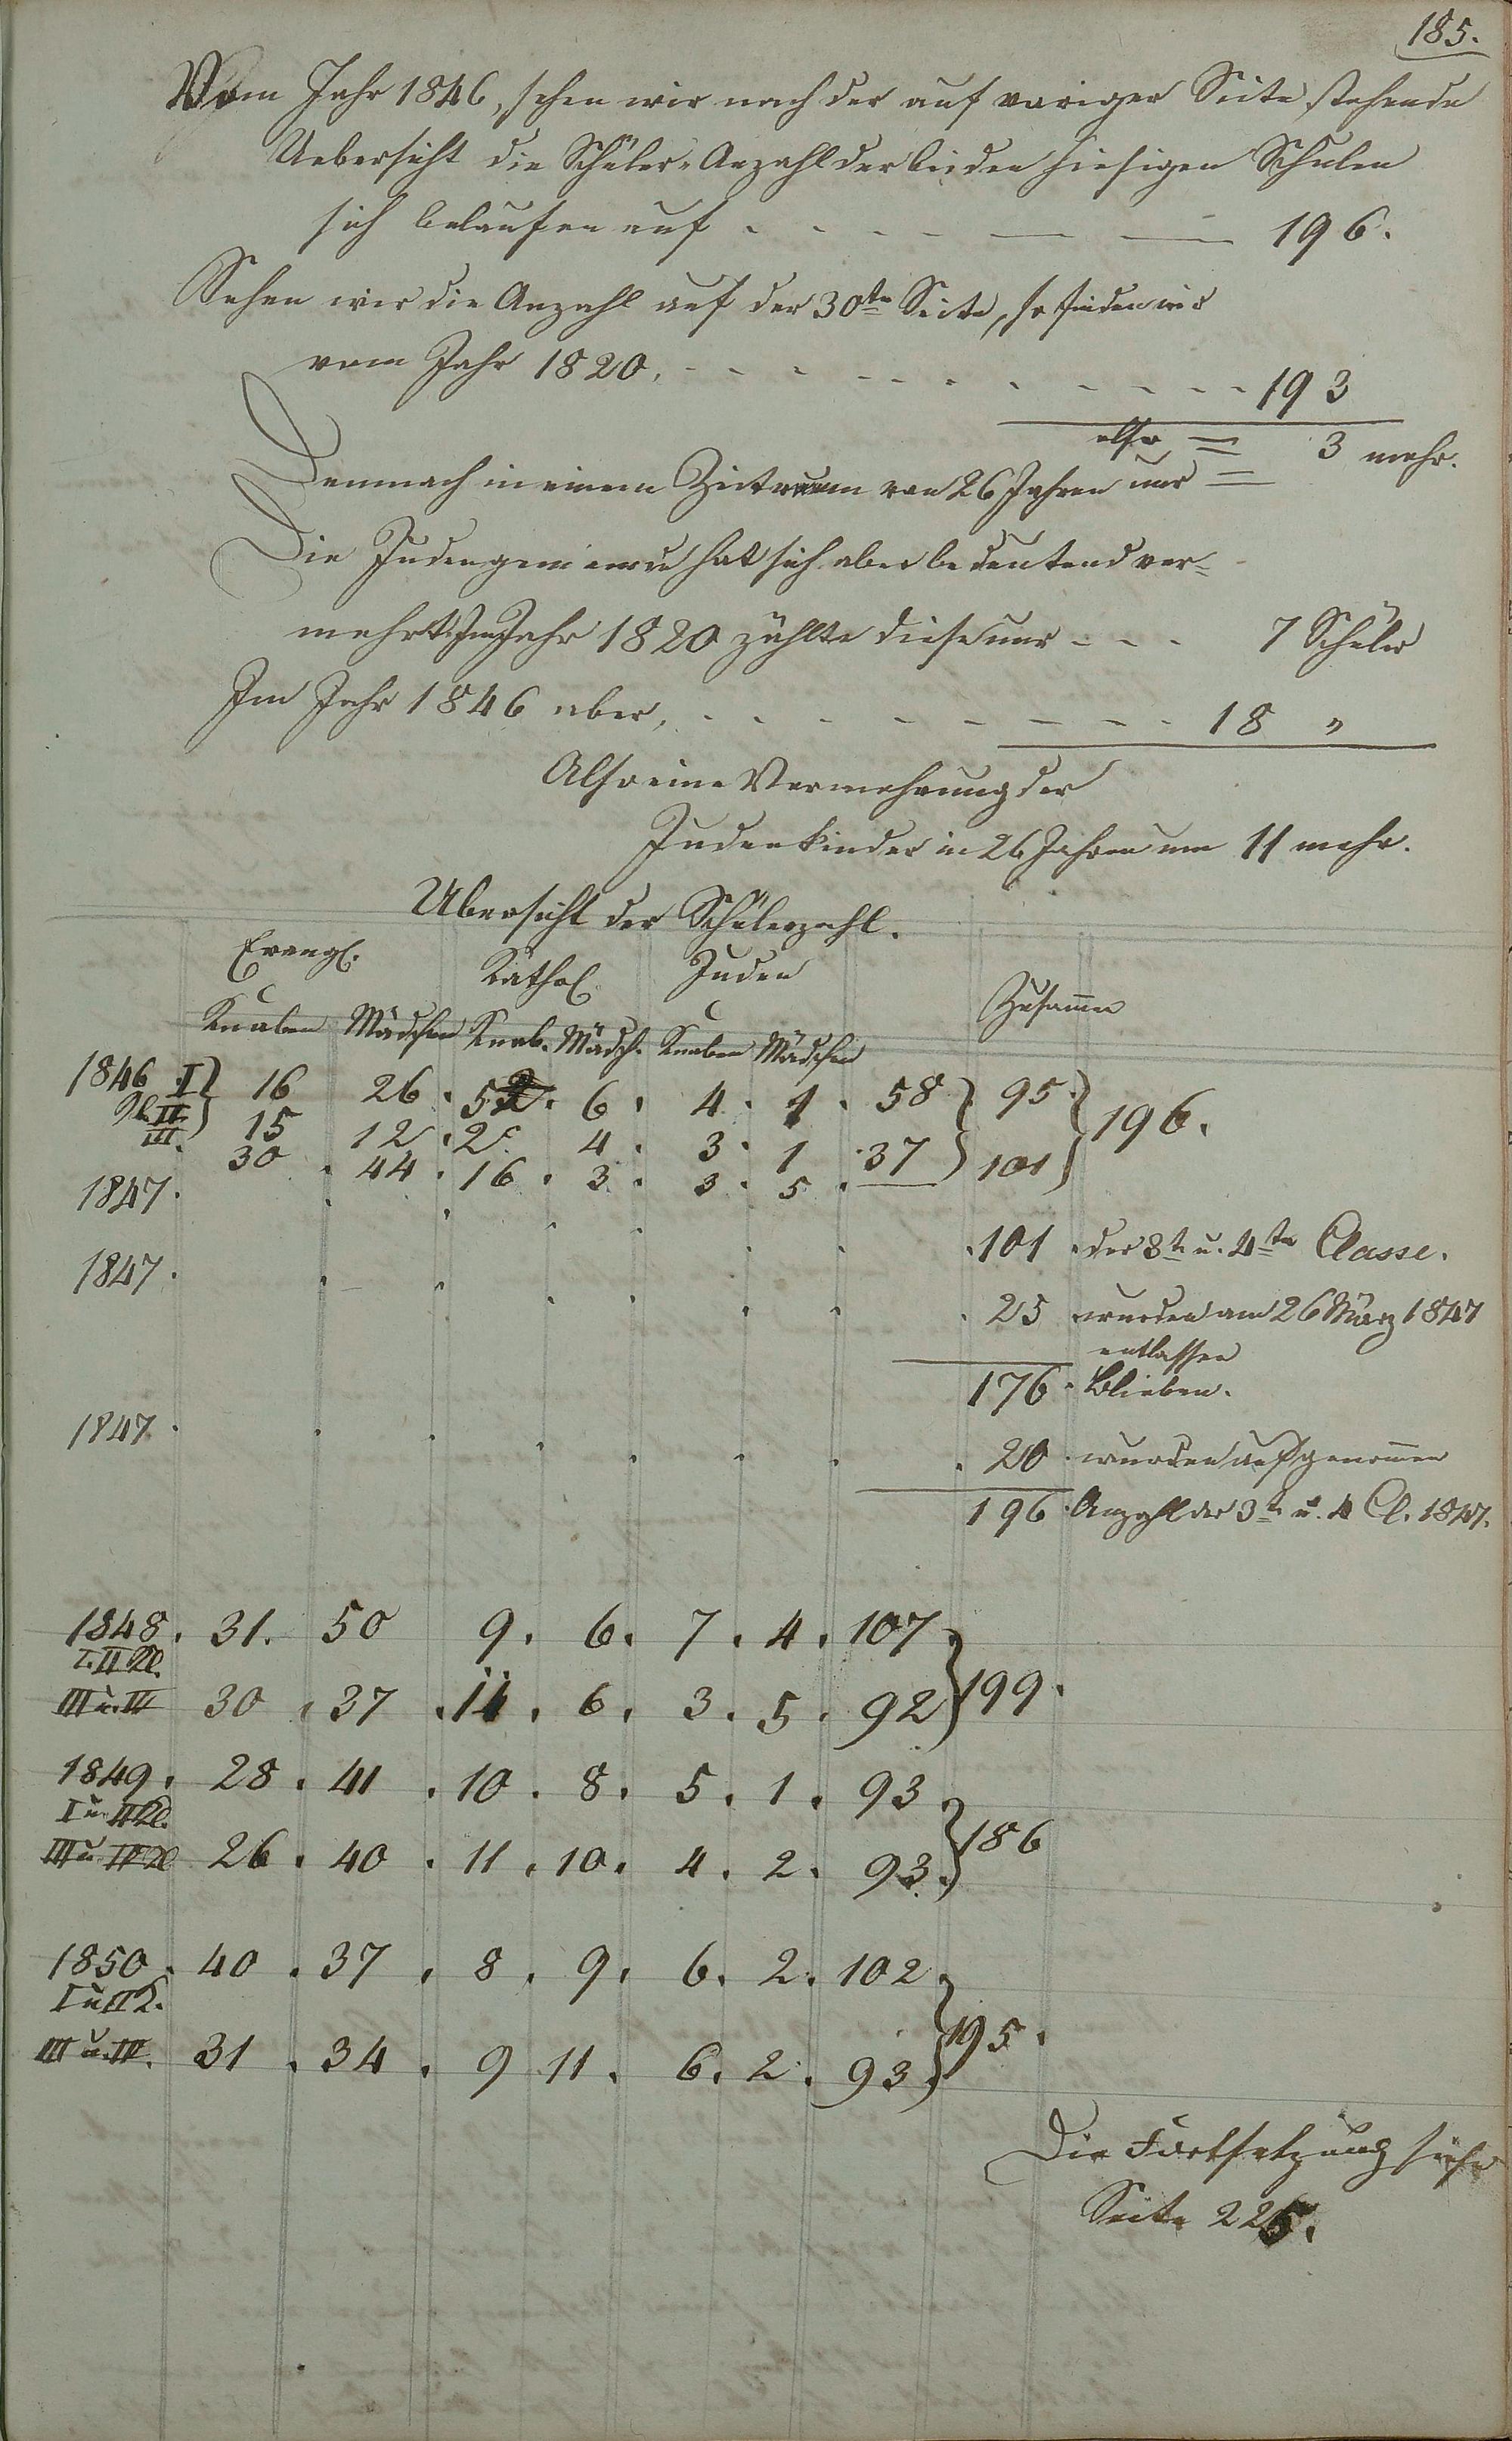 185.
Vom Jahr 1846, sehen wir nach der auf voriger Seite stehende
Uebersicht die Schüler-Anzahl der beiden hiesigen Schulen
sich belaufen auf - - - - — — 196.
Sehen wir die Anzahl auf der 30te Seite, so finden wir
vom Jahr 1820, - - - - - - - - - - 193
also = 3 mehr.
Demnach in einem Zeitraum von 26 Jahren nur =
Die Judengemeinde hat sich aber bedeutend ver=
mehrt. Im Jahr 1820 zählte diese nur - - - 7 Schüler
Im Jahr 1846 aber, - - - - - - - - 18 "
Also eine Vermehrung der
Judenkinder in 26 Jahren um 11 mehr.
Übersicht der Schülerzahl.
Evangl. Kathol Juden Zusamen
Knaben Mädchen Knab. Mädch. Knaben Mädchen
1846 I 16 26 . 52 . 6 . 4 . 1 . 58 95 196.
Kl. II 15 12 . 2 . 4 . 3 . 1 . 37
III. 30 . 44 . 16 . 3 . 3 . 5 . — 101
1847. 101 . der 3t. u. 4te Classe.
1847. 25 wurden am 26 März 1847
entlassen
176 . Blieben.
1847. 20 . wurden aufgenomen
196 . Anzahl der 3t u. 4 Cl. 1847.
1848. 31. 50 9. 6. 7. 4. 107. 199.
I. II Kl.
III u. IV 30 . 37 . 14 . 6. 3. 5. 92
1849. 28 . 41 . 10 . 8. 5. 1. 93. 186
I u. II Kl.
III u IV Kl 26 . 40 . 11 . 10. 4. 2. 93.
1850. 40 . 37 . 8 . 9. 6. 2. 102. 195.
I u II K.
III u. IV. 31 . 34 . 9 11. 6. 2. 93.
Die Fortsetzung siehe
Seite 225.